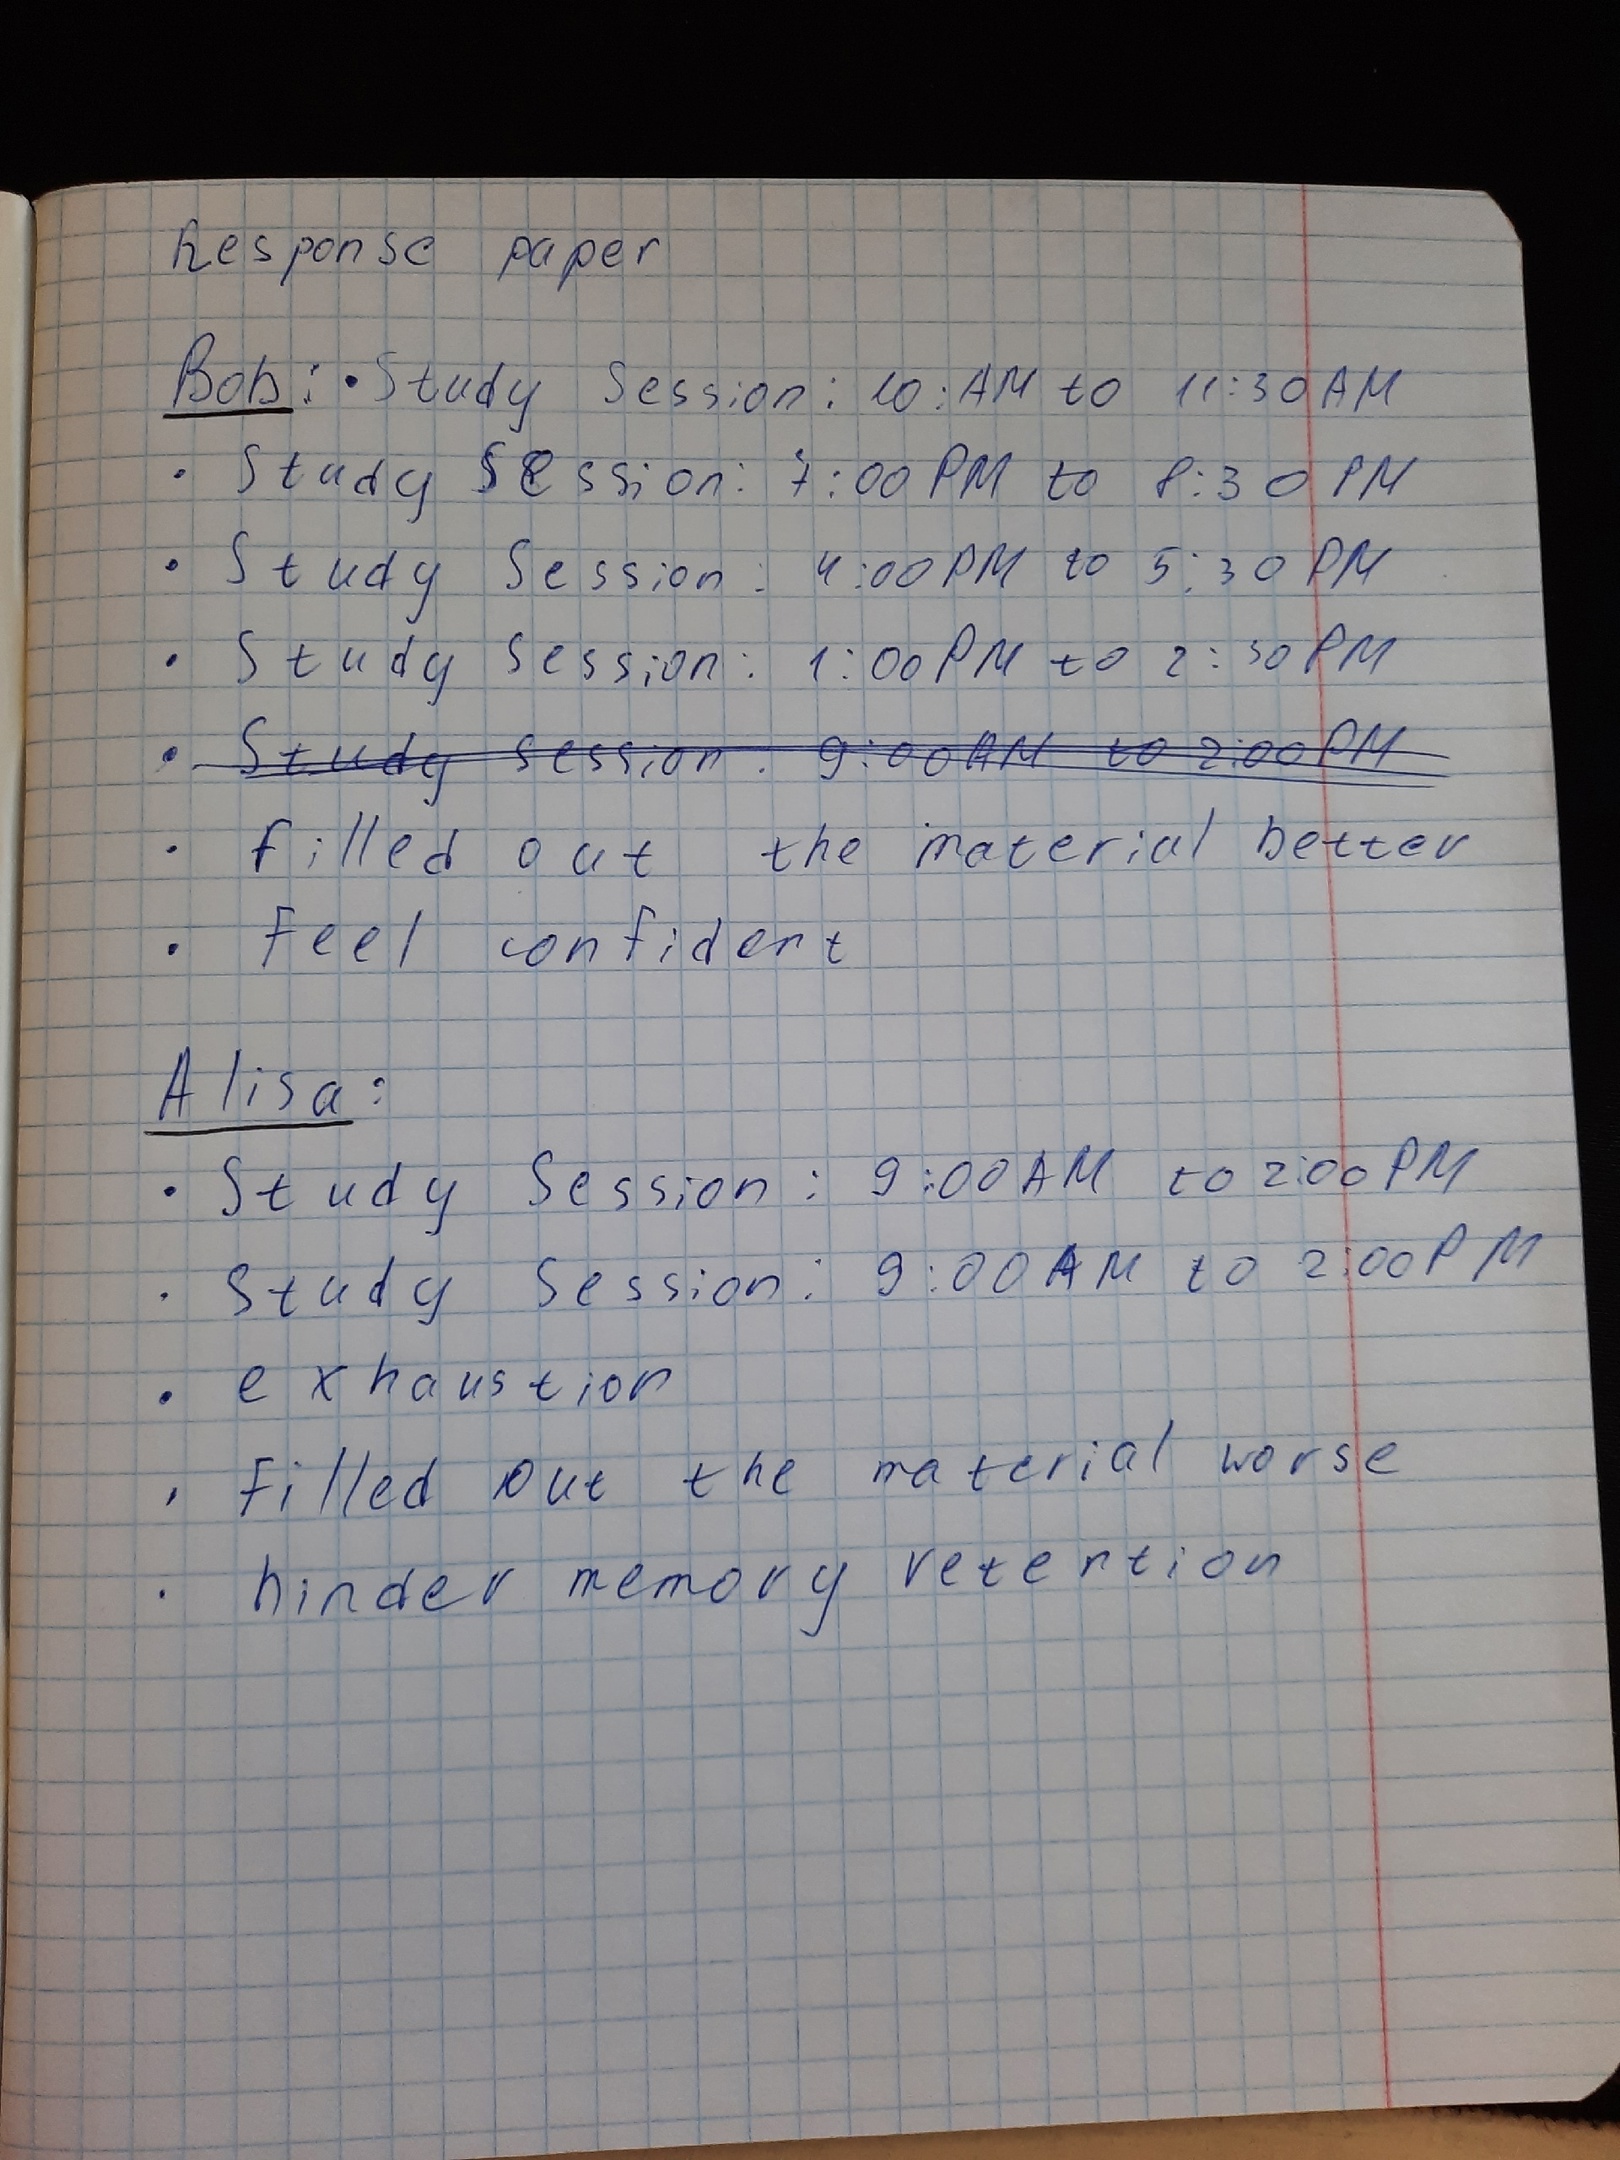 Response paper
Bob: • Study Session: 10:AM to 11:30AM
• Study Session: 7:00PM to 8:30PM
• Study Session: 4:00PM to 5:30PM
• Study Session: 1:00PM to 2:30PM
• Study Session: 9:00AM to 2:00PM
• filled out the material better
• Feel confident
Alisa:
• Study Session: 9:00AM to 2:00PM
• Study Session: 9:00AM to 2:00PM
• exhaustion
• filled out the material worse
• hinder memory retention